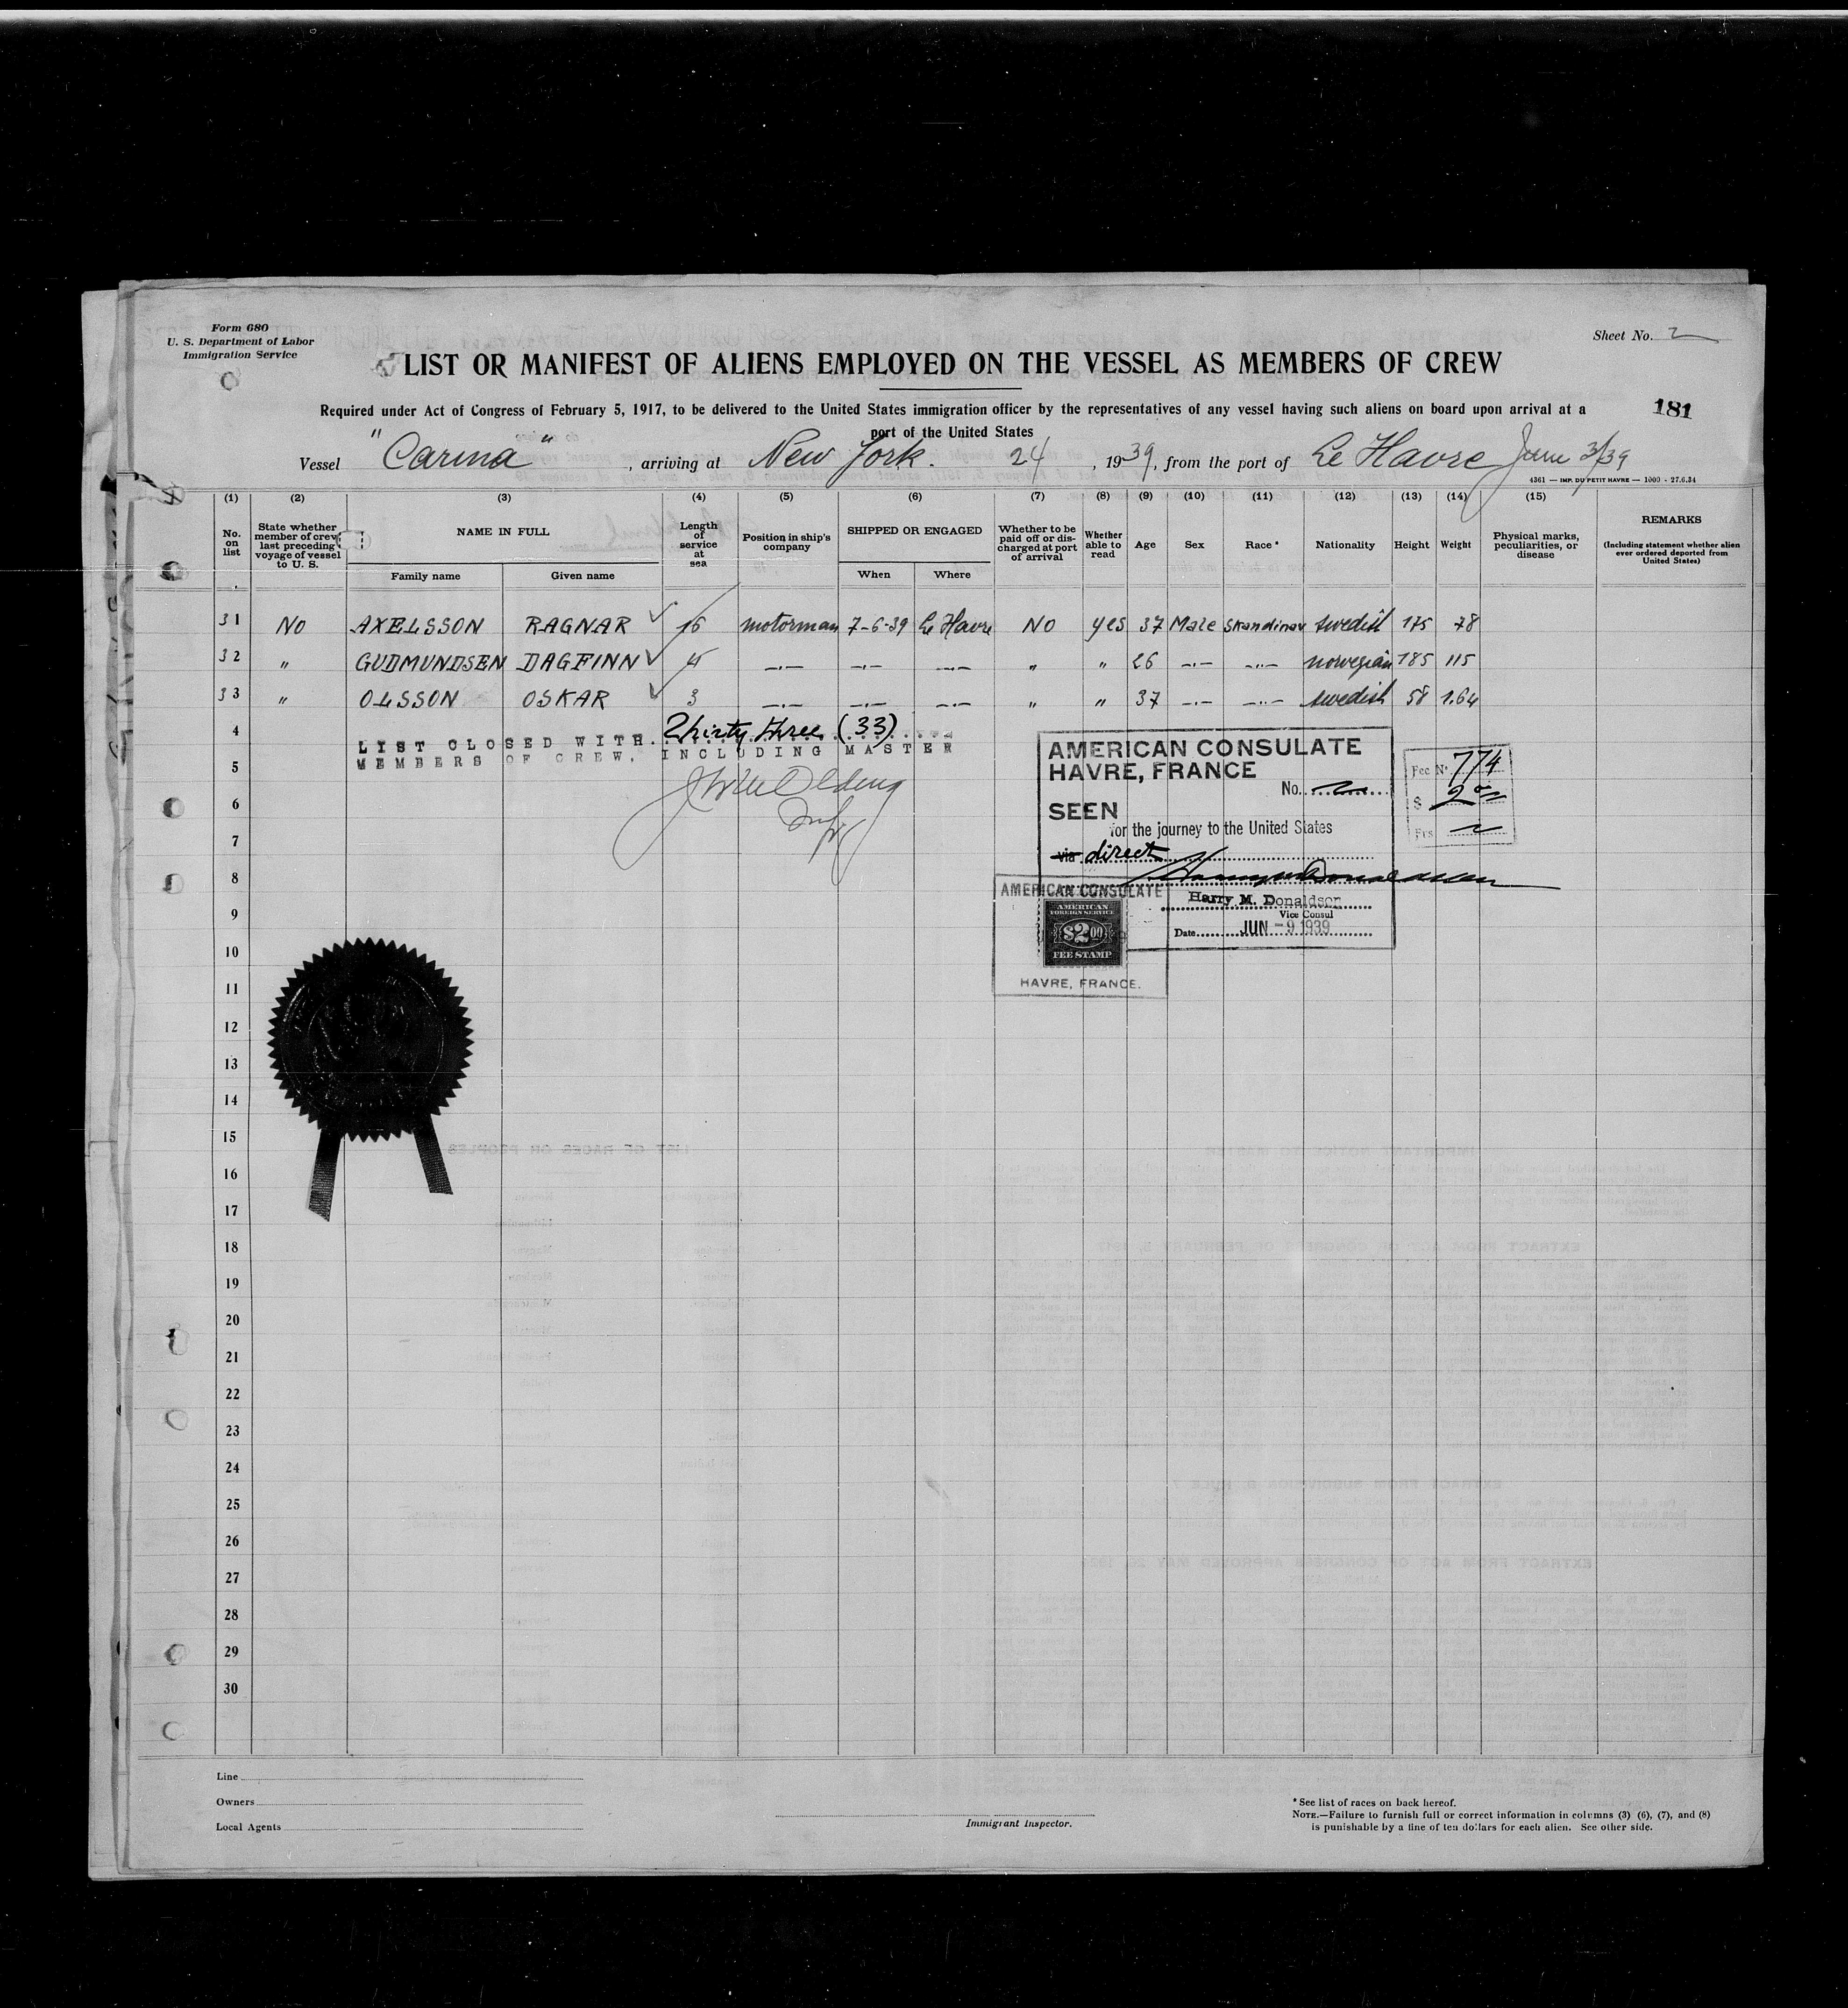 Form 680
U. S. Department of Labor
Immigration Service
Sheet No. 2
LIST OR MANIFEST OF ALIENS EMPLOYED ON THE VESSEL AS MEMBERS OF CREW
Required under Act of Congress of February 5, 1917, to be delivered to the United States immigration officer by the representatives of any vessel having such aliens on board upon arrival at a
port of the United States
181
Vessel "Carina", arriving at New York. 24, 1939, from the port of Le Havre June 3/39
4361 — IMP. DU PETIT HAVRE — 1000 - 27.6.34
(1) (2) (3) (4) (5) (6) (7) (8) (9) (10) (11) (12) (13) (14) (15)
No. on list
State whether member of crew last preceding voyage of vessel to U. S.
NAME IN FULL
Family name
Given name
Length of service at sea
Position in ship's company
SHIPPED OR ENGAGED
When
Where
Whether to be paid off or discharged at port of arrival
Whether able to read
Age
Sex
Race*
Nationality
Height
Weight
Physical marks, peculiarities, or disease
REMARKS
(Including statement whether alien ever ordered deported from United States)
31 NO AXELSSON RAGNAR 16 motorman 7-6-39 Le Havre NO yes 37 Male Skandinav swedish 175 78
32 " GUDMUNDSEN DAGFINN 4 —.— —.— —.— " " 26 —.— —..— norwegian 185 115
33 " OLSSON OSKAR 3 —.— —.— —.— " " 37 —.— —..— swedish 58 1.64
4
LIST CLOSED WITH Thirty three (33)
MEMBERS OF CREW, INCLUDING MASTER
5
6
7
8
9
10
11
12
13
14
15
16
17
18
19
20
21
22
23
24
25
26
27
28
29
30
AMERICAN CONSULATE
HAVRE, FRANCE
No.
SEEN
for the journey to the United States
via direct
Harry M. Donaldson
Vice Consul
Date JUN -9 1939
Fee No. 774
$ 2.00
Frs
AMERICAN CONSULATE
AMERICAN
FOREIGN SERVICE
$2.00
FEE STAMP
HAVRE, FRANCE.
Line
Owners
Local Agents
Immigrant Inspector.
*See list of races on back hereof.
NOTE.—Failure to furnish full or correct information in columns (3) (6), (7), and (8)
is punishable by a fine of ten dollars for each alien. See other side.